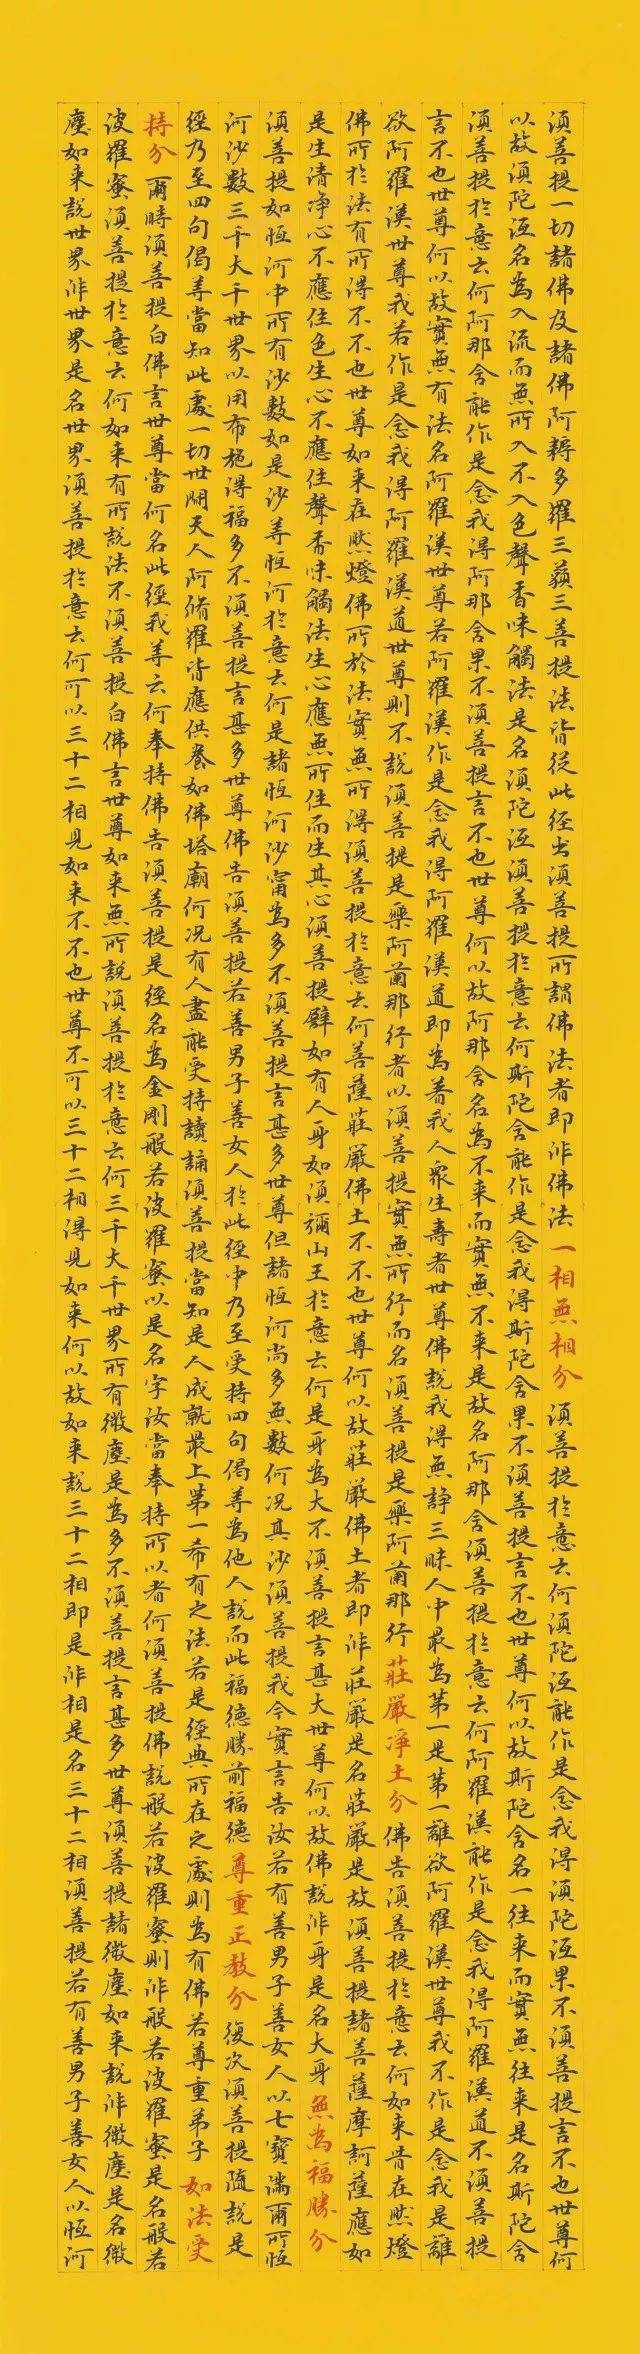 須菩提一切諸佛及諸佛阿耨多羅三藐三菩提法皆從此經出須菩提所謂佛法者即非佛法一相無相分須菩提於意云何須陀洹能作是念我得須陀洹果不須菩提言不也世尊何
以故須陀洹名為入流而無所入不入色聲香味觸法是名須陀洹須菩提於意云何斯陀含能作是念我得斯陀含果不須菩提言不也世尊何以故斯陀含名一往來而實無往來是名斯陀含
須菩提於意云何阿那含能作是念我得阿那含果不須菩提言不也世尊何以故阿那含名為不來而實無不來是故名阿那含須菩提於意云何阿羅漢能作是念我得阿羅漢道不須菩提
言不也世尊何以故實無有法名阿羅漢世尊若阿羅漢作是念我得阿羅漢道即為著我人眾生壽者世尊佛說我得無諍三昧人中最為第一是第一離欲阿羅漢世尊我不作是念我是離
欲阿羅漢世尊我若作是念我得阿羅漢道世尊則不說須菩提是樂阿蘭那行者以須菩提實無所行而名須菩提是樂阿蘭那行莊嚴淨土分佛告須菩提於意云何如來昔在然燈
佛所於法有所得不不也世尊如來在然燈佛所於法實無所得須菩提於意云何菩薩莊嚴佛土不不也世尊何以故莊嚴佛土者即非莊嚴是名莊嚴是故須菩提諸菩薩摩訶薩應如
是生清淨心不應住色生心不應住聲香味觸法生心應無所住而生其心須菩提譬如有人身如須彌山王於意云何是身為大不須菩提言甚大世尊何以故佛說非身是名大身無為福勝分
須菩提如恆河中所有沙數如是沙等恆河於意云何是諸恆河沙甯為多不須菩提言甚多世尊但諸恆河尚多無數何況其沙須菩提我今實言告汝若有善男子善女人以七寶滿爾所恆
河沙數三千大千世界以用布施得福多不須菩提言甚多世尊佛告須菩提若善男子善女人於此經中乃至受持四句偈等為他人說而此福德勝前福德尊重正教分復次須菩提隨說是
經乃至四句偈等當知此處一切世間天人阿脩羅皆應供養如佛塔廟何況有人盡能受持讀誦須菩提當知是人成就最上第一希有之法若是經典所在之處則為有佛若尊重弟子如法受
持分爾時須菩提白佛言世尊當何名此經我等云何奉持佛告須菩提是經名為金剛般若波羅蜜以是名字汝當奉持所以者何須菩提佛說般若波羅蜜則非般若波羅蜜是名般若
波羅蜜須菩提於意云何如來有所說法不須菩提白佛言世尊如來無所說須菩提於意云何三千大千世界所有微塵是為多不須菩提言甚多世尊須菩提諸微塵如來說非微塵是名微
塵如來說世界非世界是名世界須菩提於意云何可以三十二相見如來不不也世尊不可以三十二相得見如來何以故如來說三十二相即是非相是名三十二相須菩提若有善男子善女人以恆河